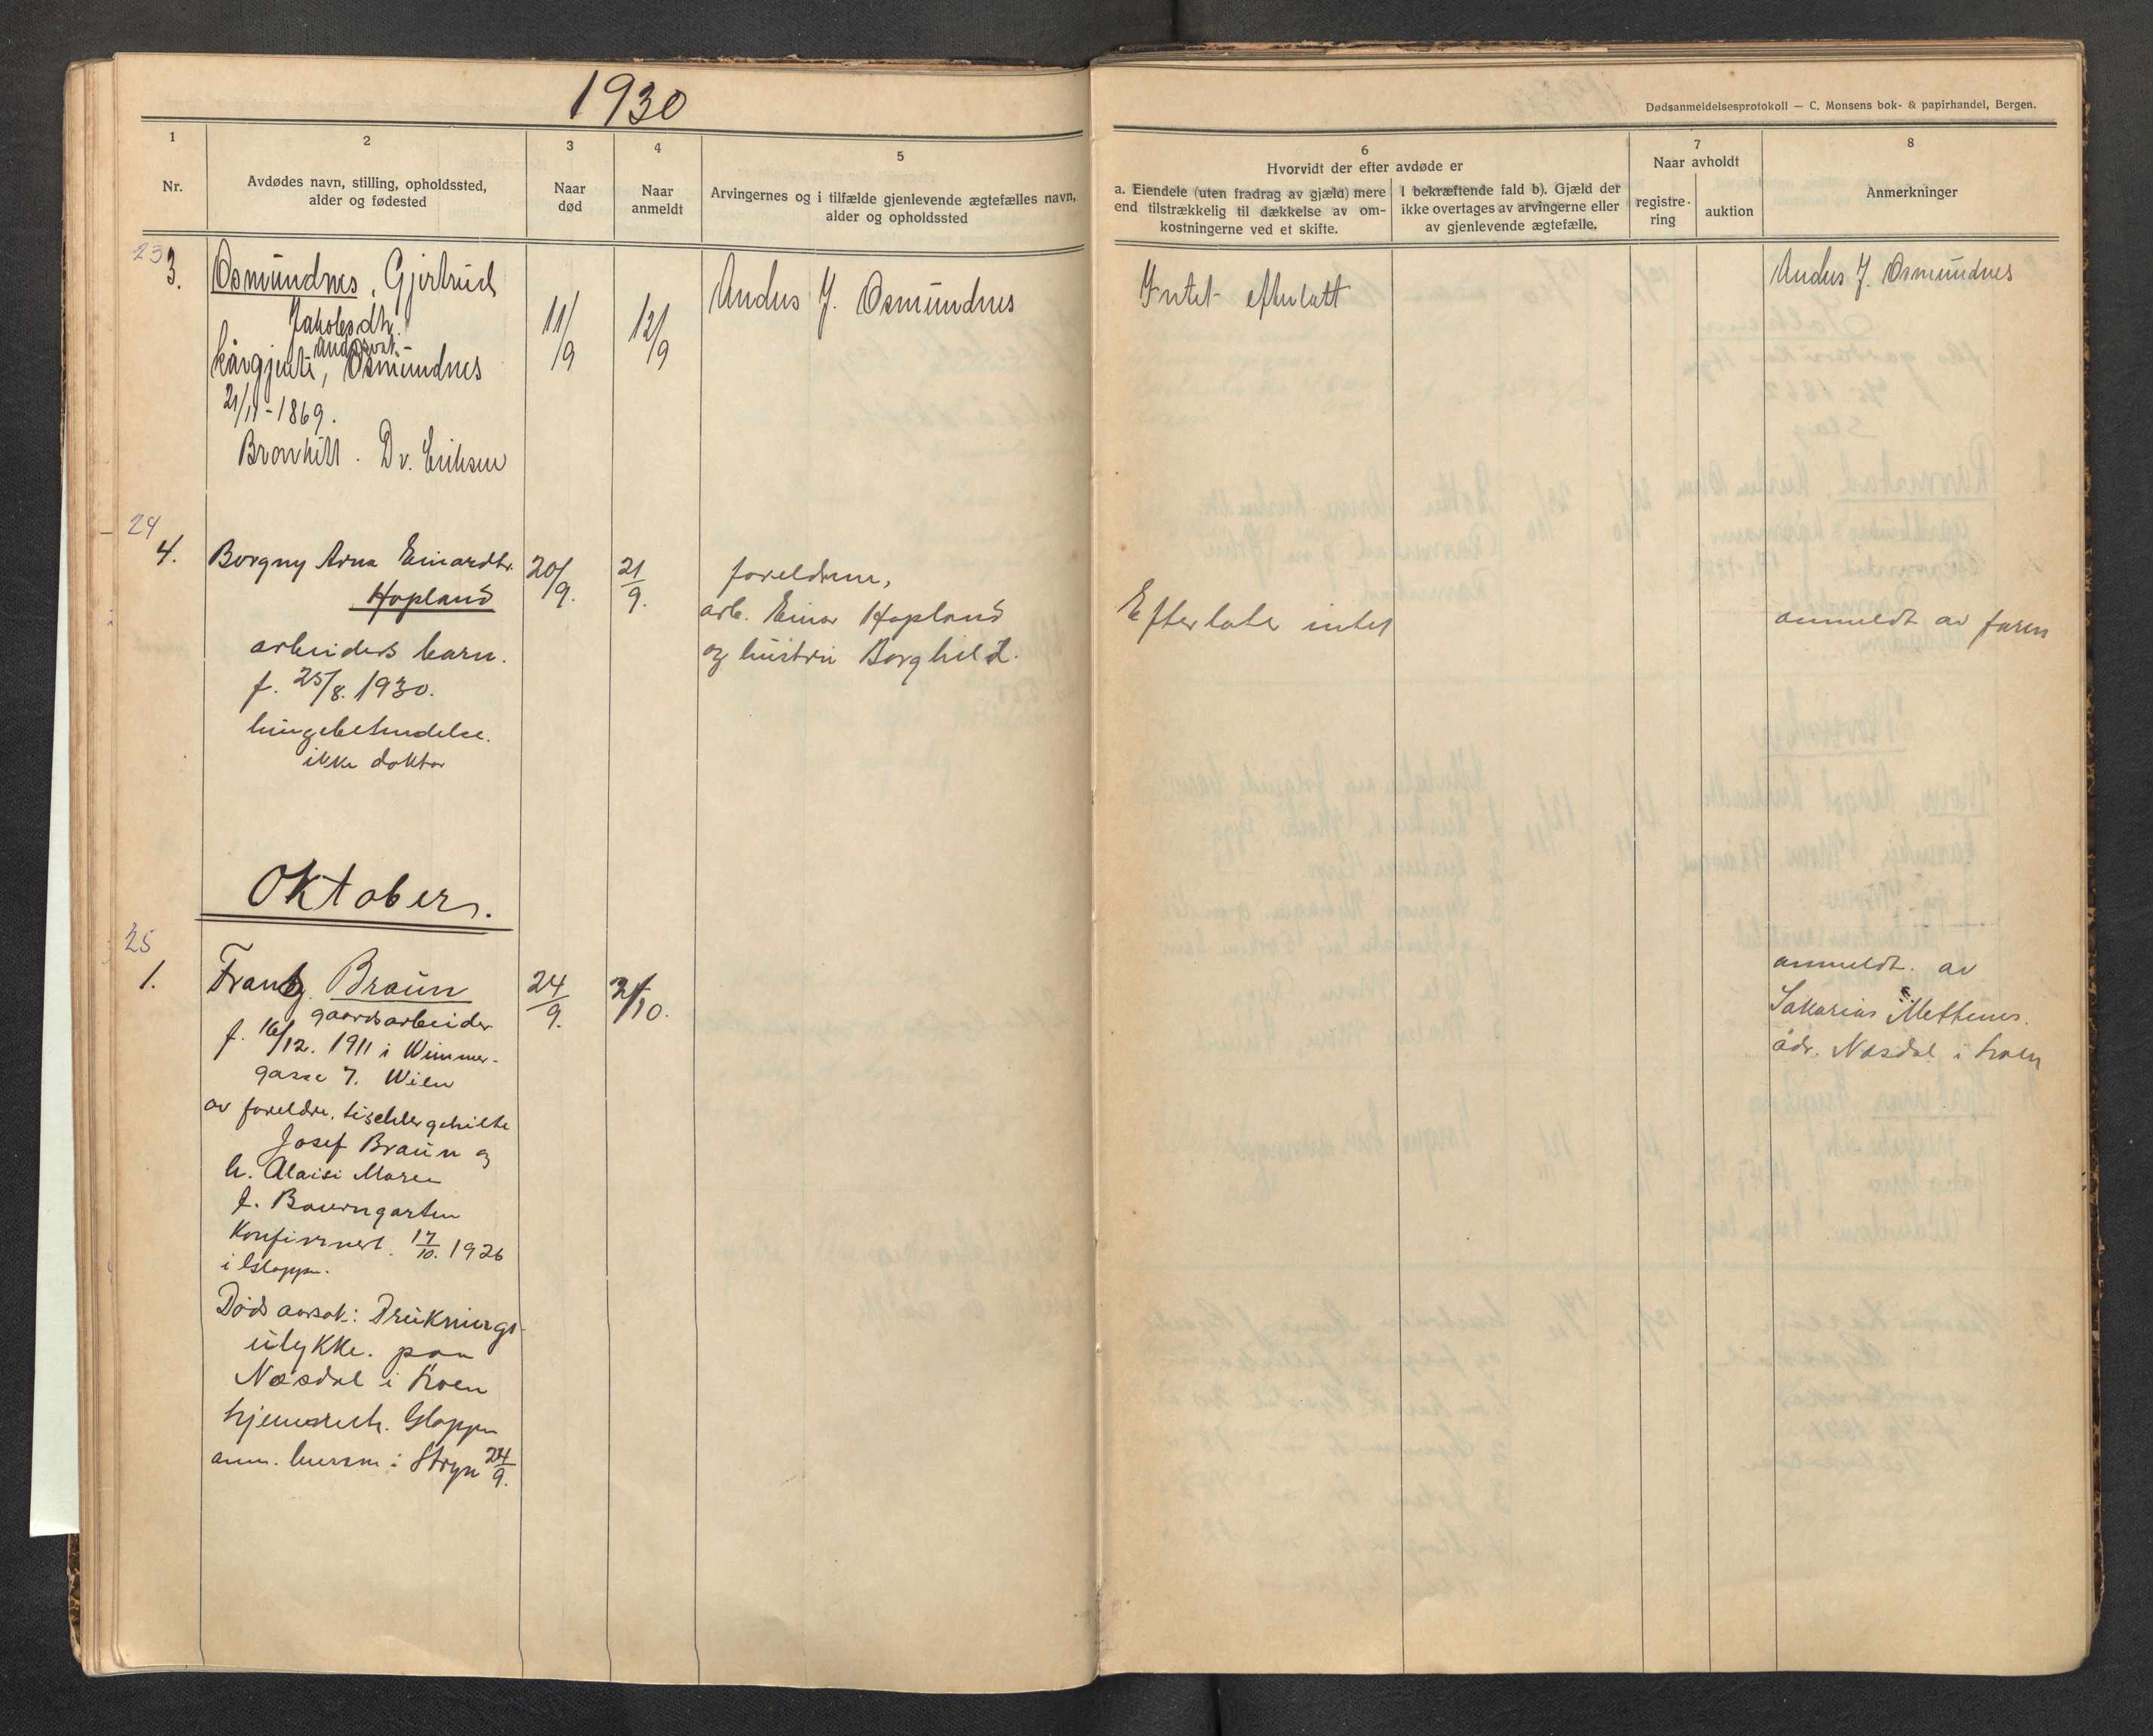 1930
Dødsanmeldelsesprotokoll — C. Monsens bok- & papirhandel, Bergen.
1
Nr.
2
Avdødes navn, stilling, opholdssted,
alder og fødested
3
Naar
død
4
Naar
anmeldt
5
Arvingernes og i tilfælde gjenlevende ægtefælles navn,
alder og opholdssted
6
Hvorvidt der efter avdøde er
a. Eiendele (uten fradrag av gjæld) mere
end tilstrækkelig til dækkelse av om-
kostningerne ved et skifte.
I bekræftende fald b). Gjæld der
ikke overtages av arvingerne eller
av gjenlevende ægtefælle.
7
Naar avholdt
registre-
ring
auktion
8
Anmerkninger
23
3.
Osmundnes, Gjertrud
Jakobsdtr.
kårgjente, Osmundnes
21/11-1869.
Dr. Eriksen
11/9
12/9
Andus J. Osmundnes
Intet efterlatt
Andus J. Osmundnes
24
4.
Borgny Arna Einardtr.
Hopland
arbeiders barn.
f. 25/8. 1930.
lungebetendelse.
ikke doktor
20/9.
21/9.
foreldrene,
arb. Einar Hopland
og hustru Borghild.
Efterlater intet
anmeldt av faren
Oktober.
25
1.
Frantz Braun
gaardsarbeider
f. 16/12. 1911 i Wimmer-
gasse 7. Wien
av foreldre, tischlergehilfe
Josef Braun og
h. Aloisi Marie
f. Baumgarten
Konfirmert 17/10. 1926
i Gloppen.
Døds aarsak: Druknings-
ulykke. paa
Næsdal i Loen
hjemsted. Gloppen
anm. lensm i Stryn 24/9.
24/9.
2/10.
anmeldt. av
Sakarias Mettenes.
adr. Næsdal i Loen